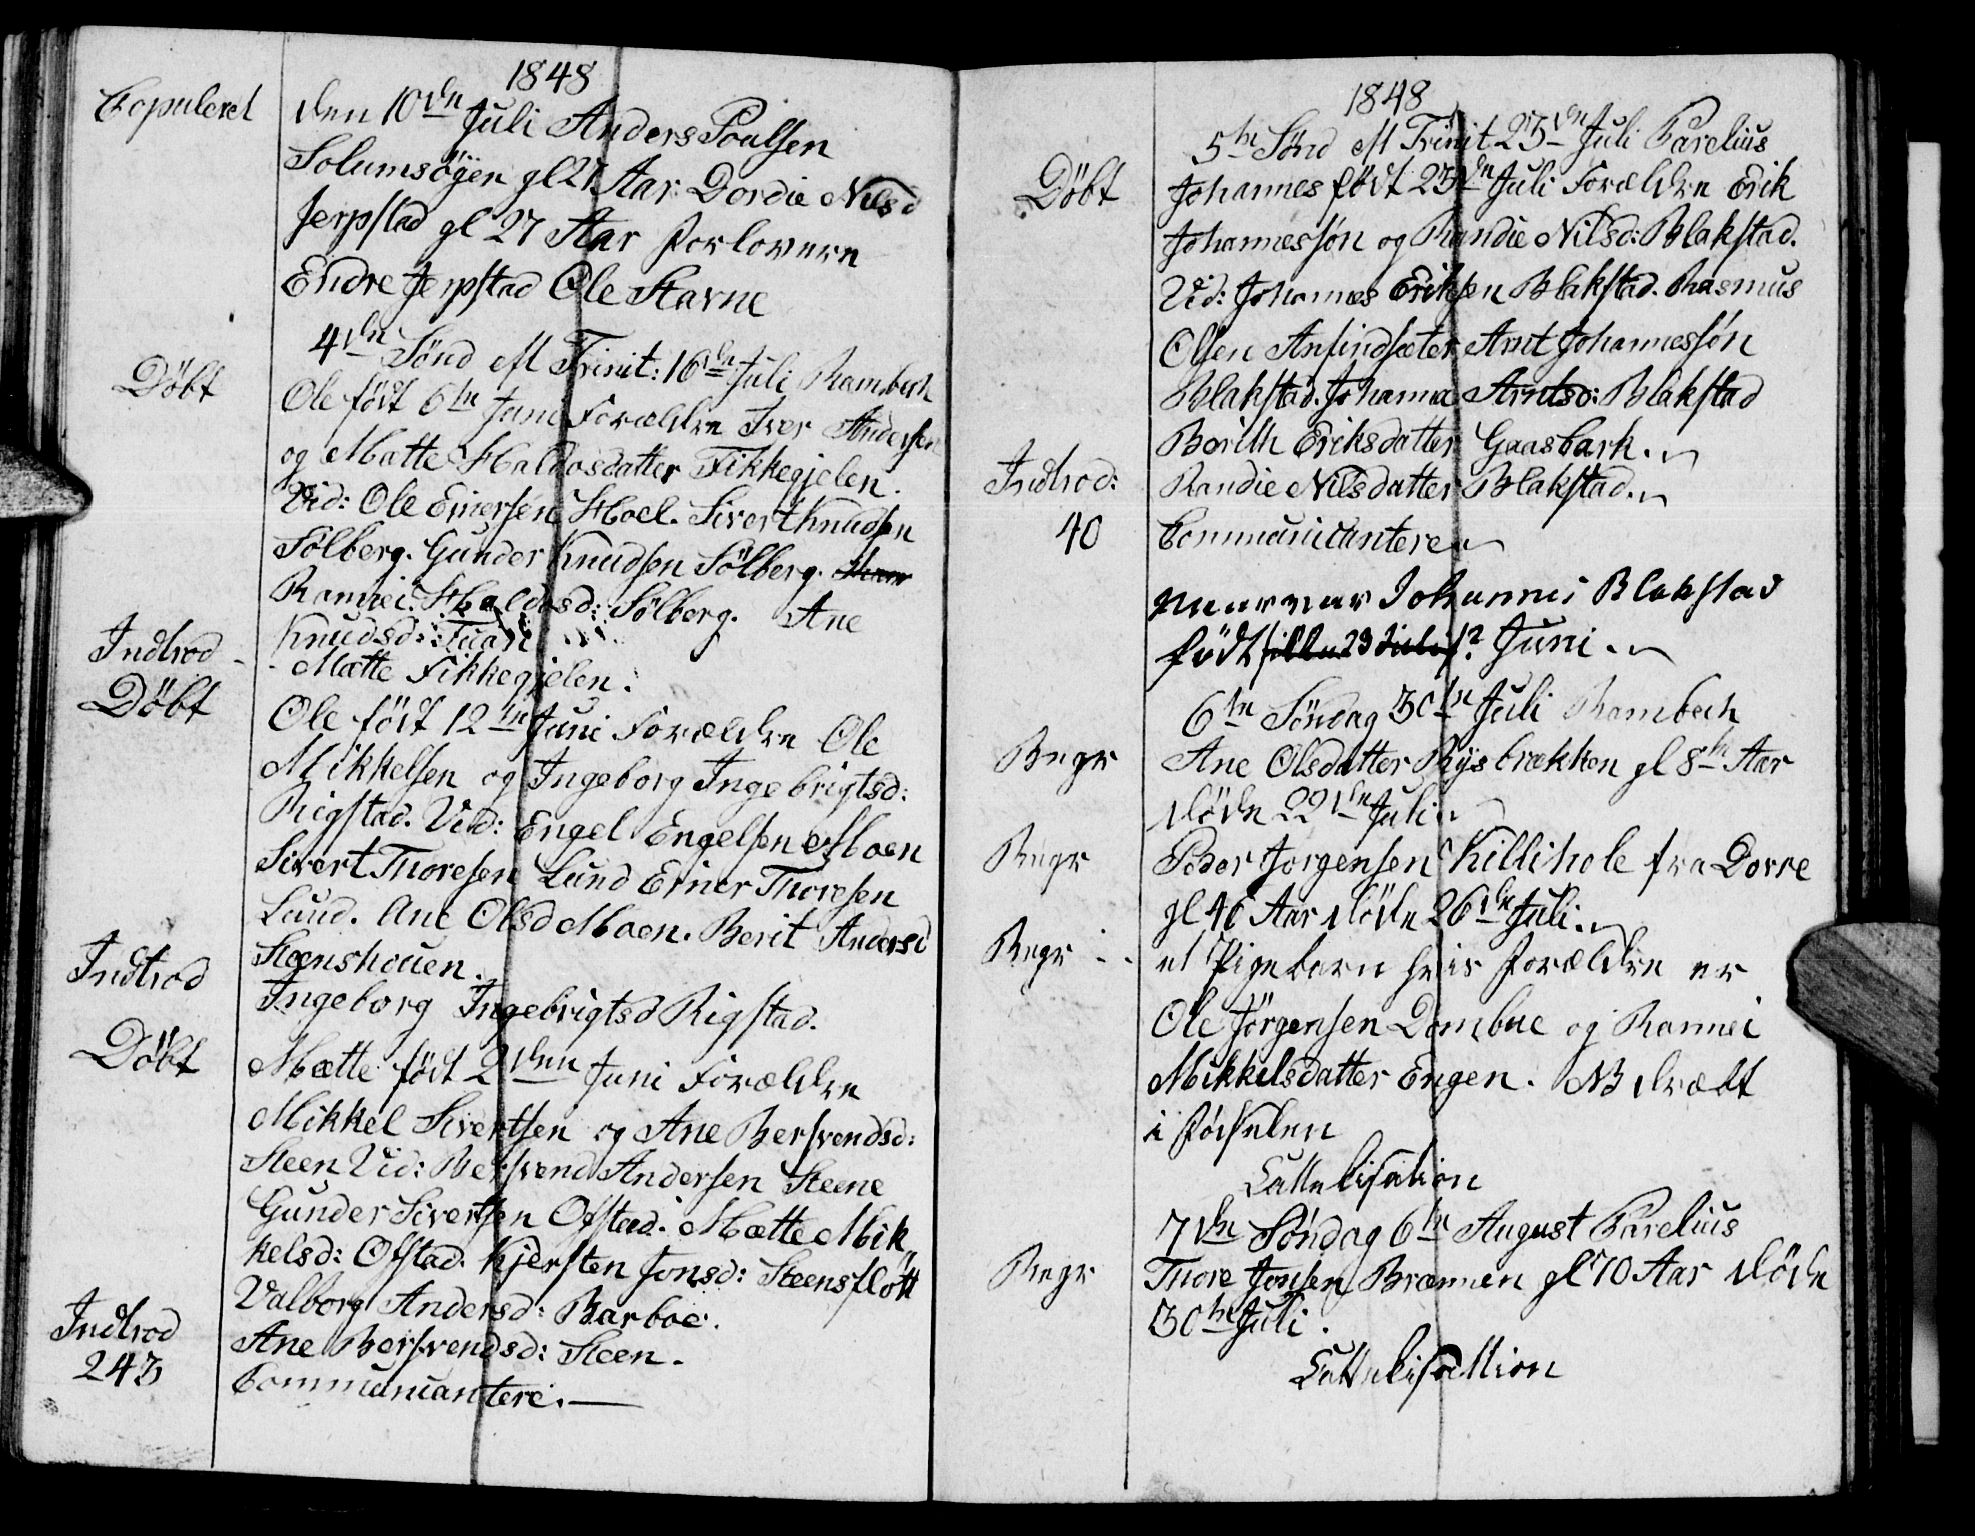 1848
Copuleret den 10de Juli Anders Poulsen
Solumsöyen gl 27 Aar Dordie Nilsd
Jerpstad gl 27 Aar Forlovere
Endre Jerpstad Ole Stavne
4de Sönd eft Trinit: 16de Juli Rambech
Döbt Ole födt 6te Juni Forældre Iver Andersen
og Mætte Haldosdatter Fikkegjelen.
Vid: Ole Einersen Hoel. Sivert Knudsen
Sölberg. Gunder Knudsen Sölberg.
Rannei Haldosd: Sölberg. Ane
Knudsd: Tuan
Indtrod - Mætte Fikkegjelen.
Döbt Ole födt 12te Juni Forældre Ole
Mikkelsen og Ingeborg Ingebrigtsd:
Rigstad. Vid: Engel Engelsen Moen
Sivert Thoresen Lund Einer Thoresen
Lund. Ane Olsd Moen. Berit Andersd
Steenshouen.
Indtrod Ingeborg Ingebrigtsd Rigstad.
Döbt Mætte födt 2den Juni Forældre
Mikkel Sivertsen og Ane Bersvendsd:
Steen Vid: Bersvend Andersen Steene
Gunder Sivertsen Ofstad. Mætte Mik
kelsd: Ofstad. Kjersten Jonsd: Steensflött
Valborg Andersd: Barboe.
Indtrod Ane Bersvendsd: Steen.
243 Communicantere.
1848
5te Sönd eft Trinit 23de Juli Parelius
Döbt Johannes födt 23de Juli Forældre Erik
Johannessön og Randie Nilsd: Blakstad.
Vid: Johannes Eriksen Blakstad. Rasmus
Olsen Anfindsæter Arnt Johannessön
Blakstad. Johanna Arntsd: Blakstad
Borith Eriksdatter Gaasbark.
Indtrod: Randie Nilsdatter Blakstad.
40 Communicantere
Naar var Johannes Blakstad
födt 23 Juli? Juni.
6te Söndag 30te Juli Rambech
Begr Ane Olsdatter Rysbrækken gl 8te Aar
döde 22de Juli
Begr Peder Jorgensen Killihole fra Dovre
gl 46 Aar döde 26de Juli.
Begr et Pigebarn hvis Forældre er
Ole Jörgensen Dombue og Rannei
Mikkelsdatter Engen. NB dræbt
i Födselen
Cattekisation
7de Söndag 6te August Parelius
Begr Thore Jonsen Bræmmen gl 70 Aar döde
30te Juli.
Cattekisattion